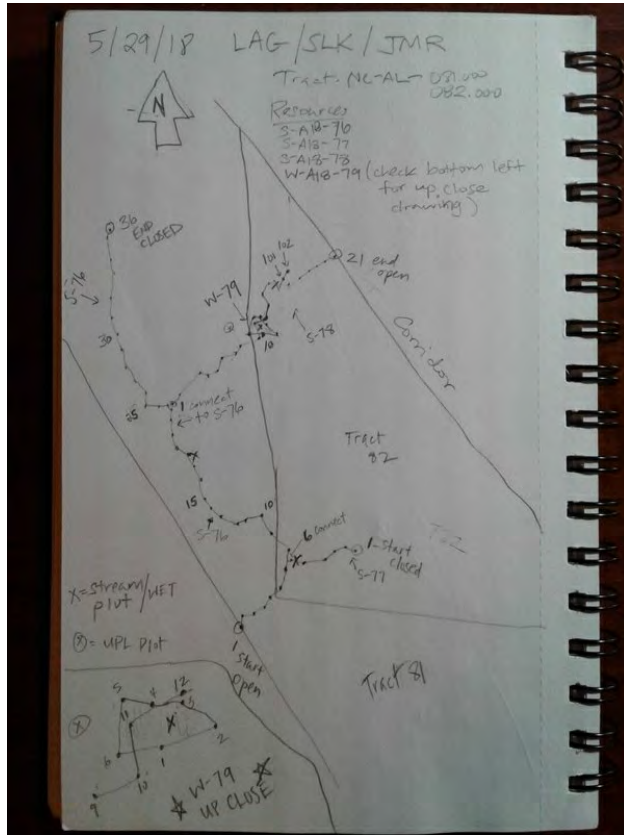 5/29/18 LAG/SLK/JMR
Tract. NC-AL- 081.000
082.000
N
Resources
S-A18-76
S-A18-77
S-A18-78
W-A18-79 (check bottom left
for up close
drawing)
36
END
CLOSED
S-76
30
25
W-79
101 102
21 end
open
10
S-78
Corridor
1 connect
to S-76
Tract
82
15
10
S-76
6 connect
1-start
closed
S-77
X=stream/WET
plot
Ⓧ= UPL plot
1 start
open
Tract 81
X
5 4 12
11 3
X
6 1 2
9 10
W-79
UP CLOSE